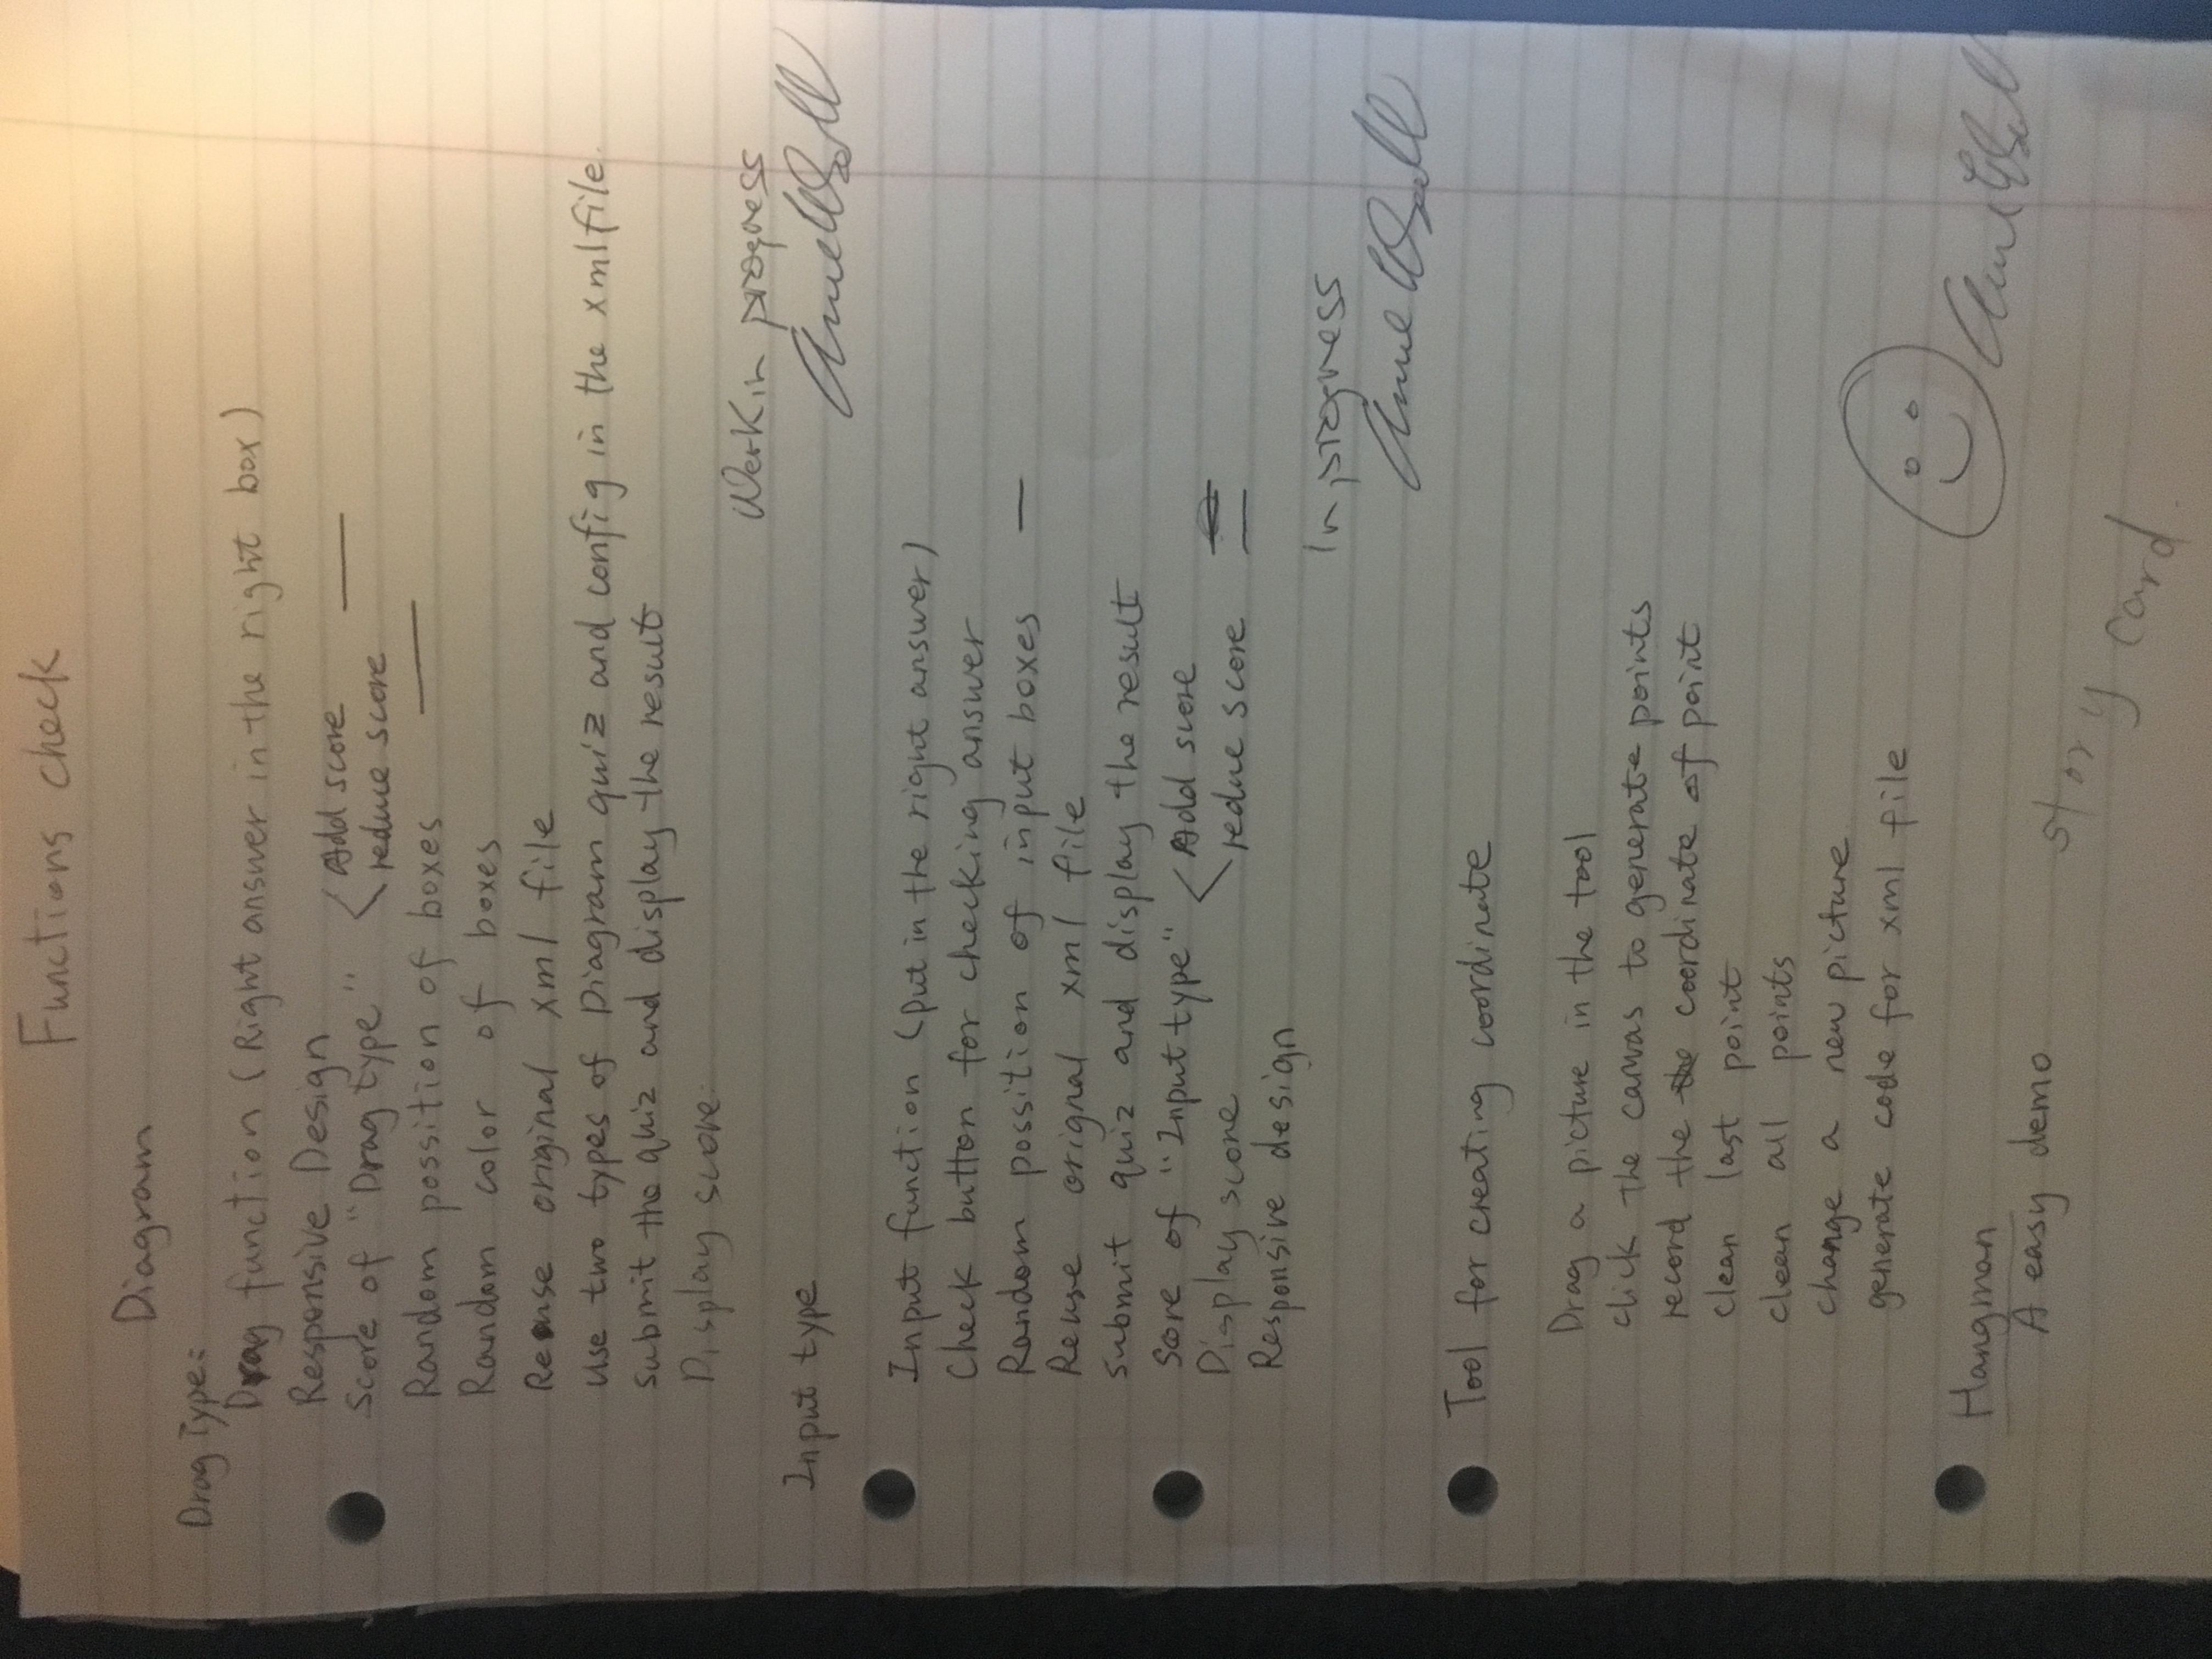 Functions check
Diagram
Drag Type:
Drag function (Right answer in the right box)
Responsive Design
Score of "Drag type" < Add score
reduce score
Random possition of boxes
Random color of boxes
Reuse original xml file
Use two types of Diagram quiz and config in the xml file.
Submit the quiz and display the result
Display score.
Work in progress
Input type
Input function (put in the right answer)
Check button for checking answer
Random possition of input boxes
Reuse orignal xml file
submit quiz and display the result
Score of "Input type" < Add score
reduce score
Display score
Responsive design
In progress
Tool for creating coordinate
Drag a picture in the tool
click the canvas to generate points
record the coordinate of point
clean last point
clean all points
change a new picture
generate code for xml file
Hangman
A easy demo
story card